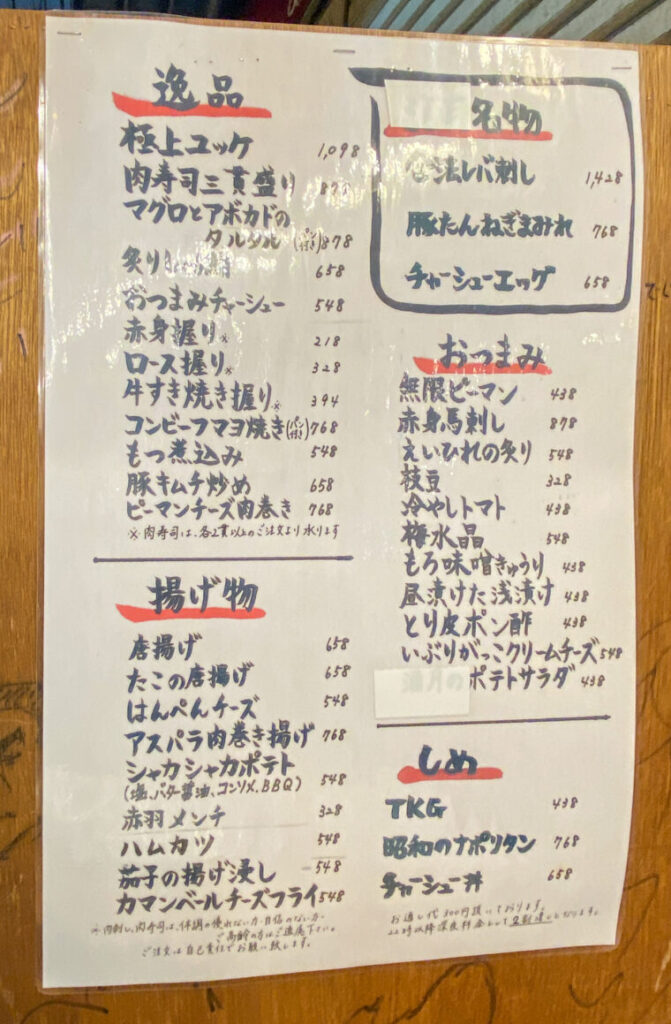 逸品
極上ユッケ 1,098
肉寿司三貫盛り
マグロとアボカドの
タルタル 878
炙り 658
おつまみチャーシュー 548
赤身握り※ 218
ロース握り※ 328
牛すき焼き握り※ 394
コンビーフマヨ焼き 768
もつ煮込み 548
豚キムチ炒め 658
ピーマンチーズ肉巻き 768
※肉寿司は、各2貫以上のご注文より承ります
揚げ物
唐揚げ 658
たこの唐揚げ 658
はんぺんチーズ 548
アスパラ肉巻き揚げ 768
シャカシャカポテト
(塩、バター醤油、コンソメ、BBQ) 548
赤羽メンチ 328
ハムカツ 548
茄子の揚げ浸し 548
カマンベールチーズフライ 548
※肉刺し、肉寿司は、体調の優れない方・自信のない方・
ご高齢の方はご遠慮下さい。
ご注文は自己責任でお願い致します。
名物
法レバ刺し 1,428
豚たんねぎまみれ 768
チャーシューエッグ 658
おつまみ
無限ピーマン 438
赤身馬刺し 878
えいひれの炙り 548
枝豆 328
冷やしトマト 438
梅水晶 548
もろ味噌きゅうり 438
昼漬けた浅漬け 438
とり皮ポン酢 438
いぶりがっこクリームチーズ 548
ポテトサラダ 438
しめ
TKG 438
昭和のナポリタン 768
チャーシュー丼 658
お通し代300円頂いております。
22時以降深夜料金として2割達しとなります。